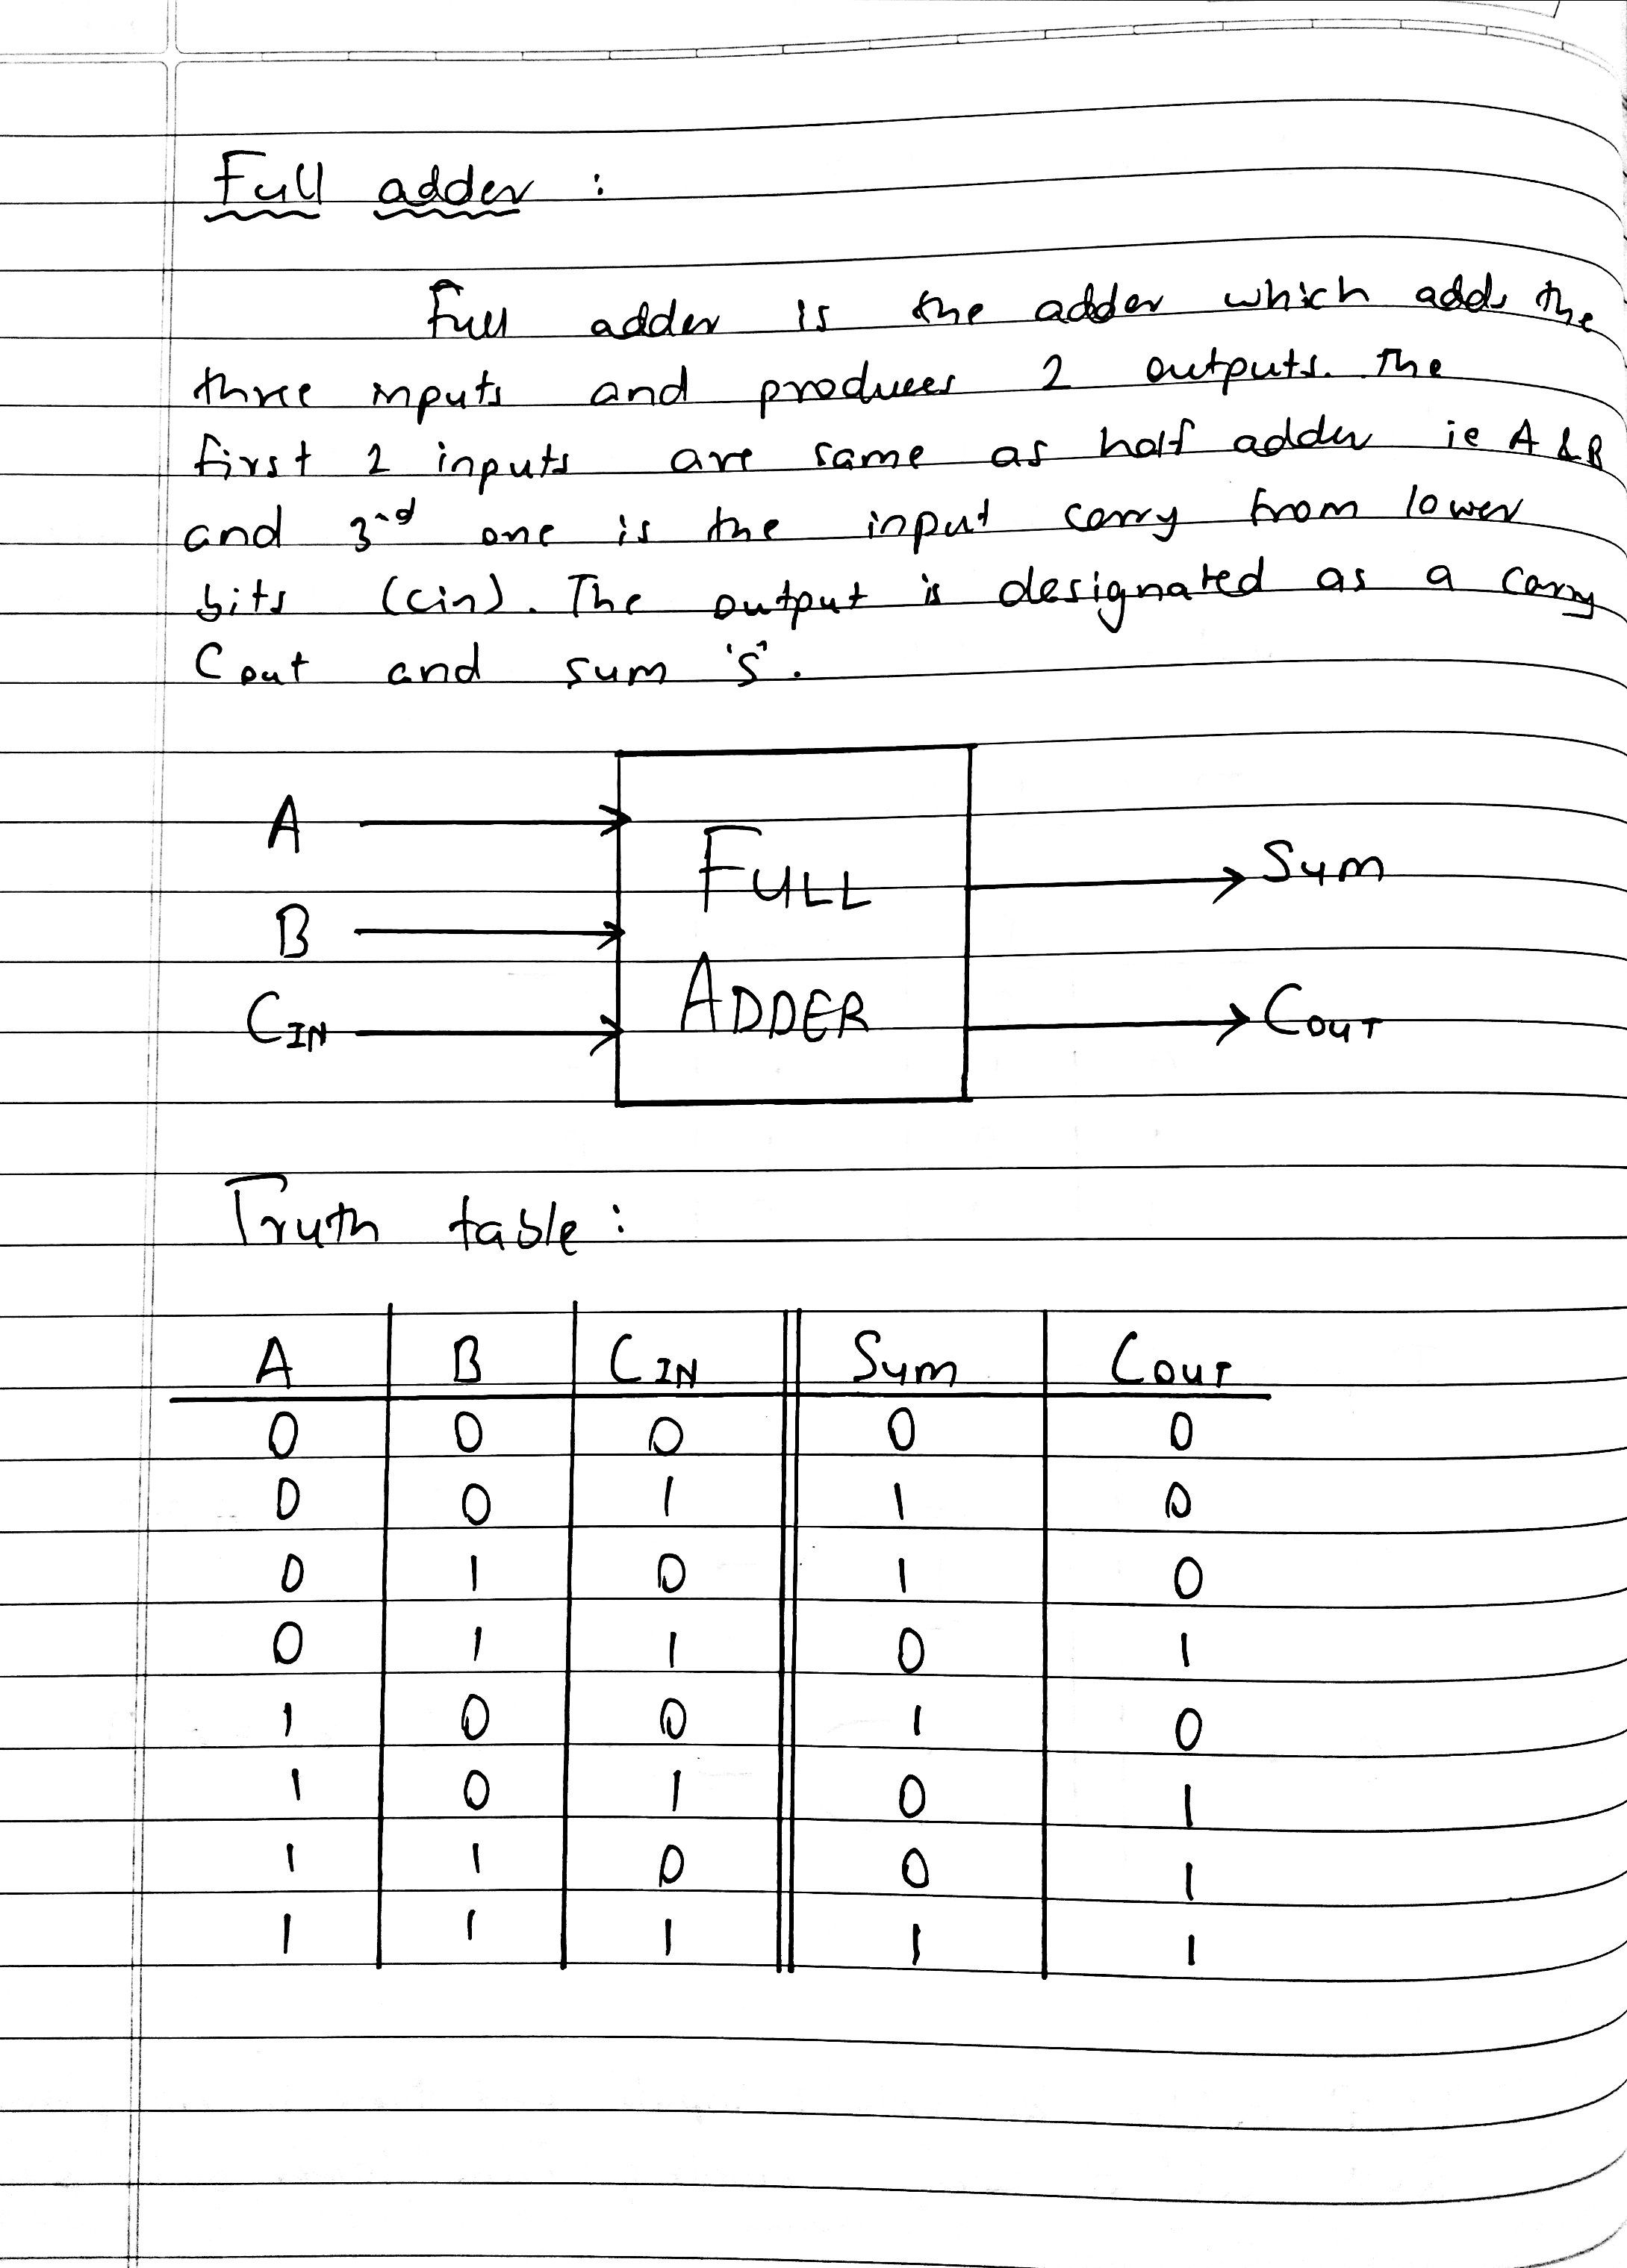 Full adder :
Full adder is the adder which adds the
three inputs and produces 2 outputs. The
first 2 inputs are same as half adder ie A & B
and 3rd one is the input carry from lower
bits (cin). The output is designated as a carry
Cout and sum 'S'.
A
FULL
Sum
B
ADDER
CIN
COUT
Truth table :
A B CIN Sum COUT
0 0 0 0 0
0 0 1 1 0
0 1 0 1 0
0 1 1 0 1
1 0 0 1 0
1 0 1 0 1
1 1 0 0 1
1 1 1 1 1